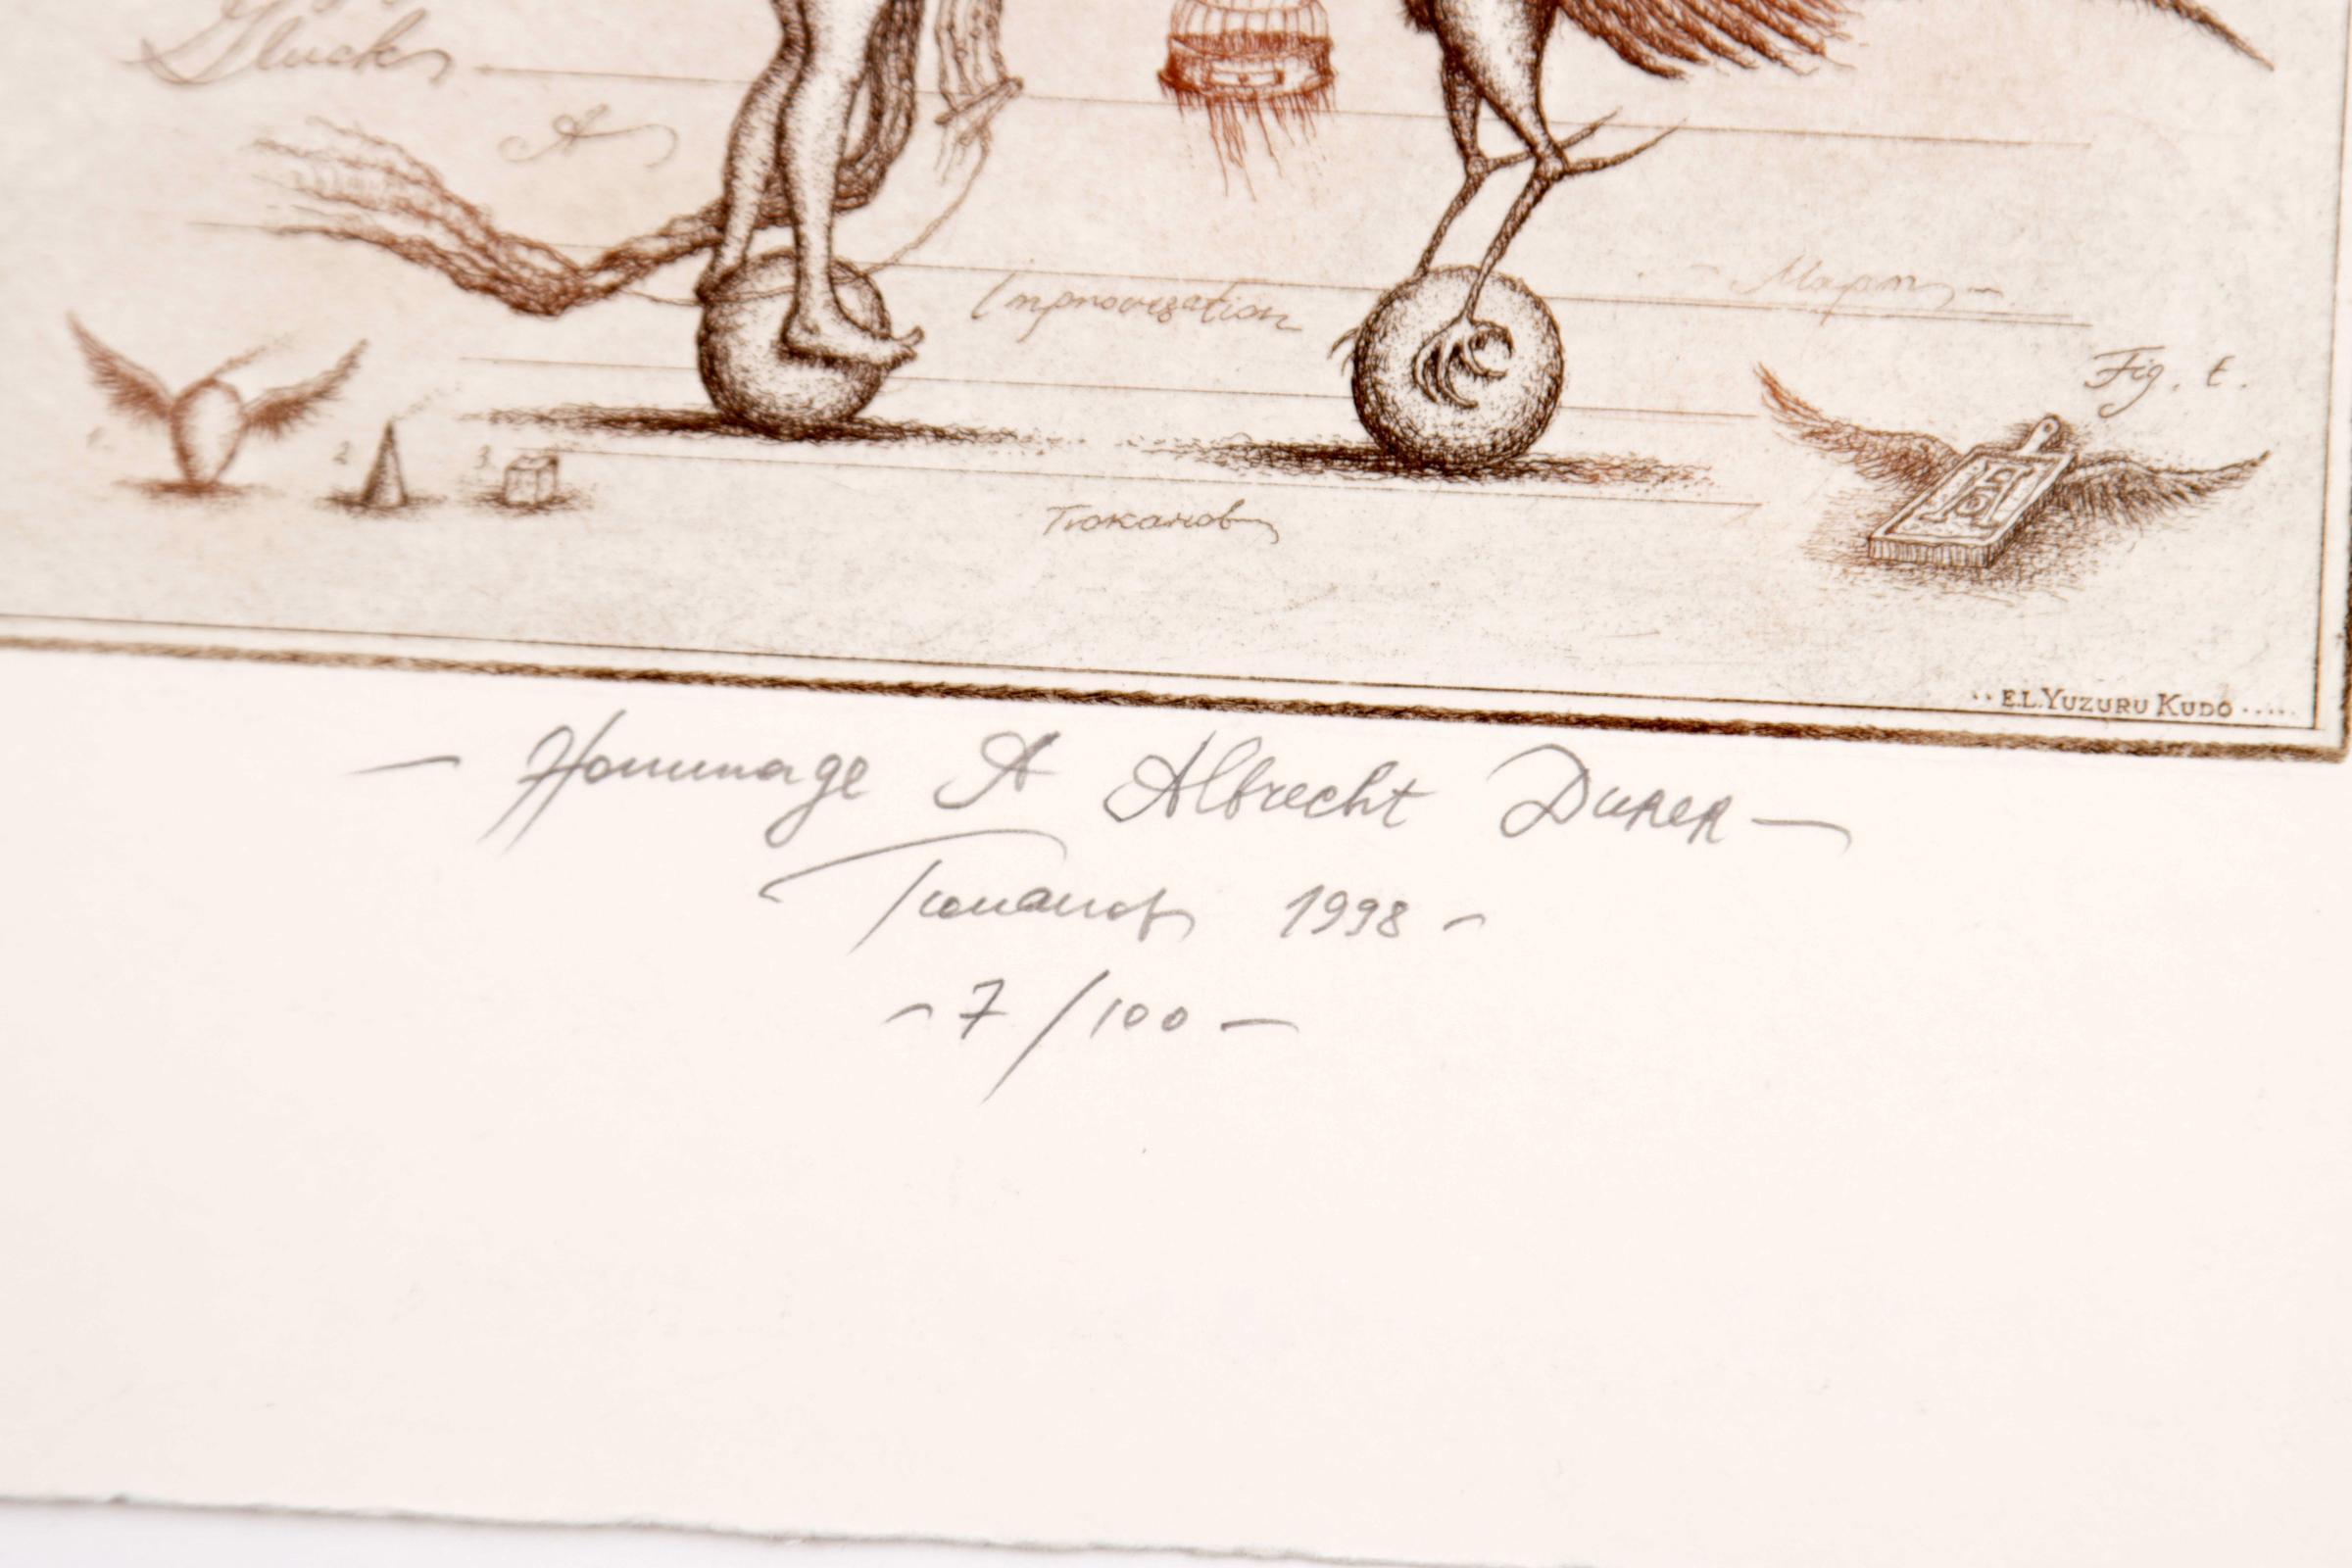 Gluck
A
Improvisation
Fig. t.
1.
2.
3.
Тюканов
·· E.L. YUZURU KUDO ·····
— Hommage A Albrecht Durer —
Тюканов 1998 -
- 7/100 -